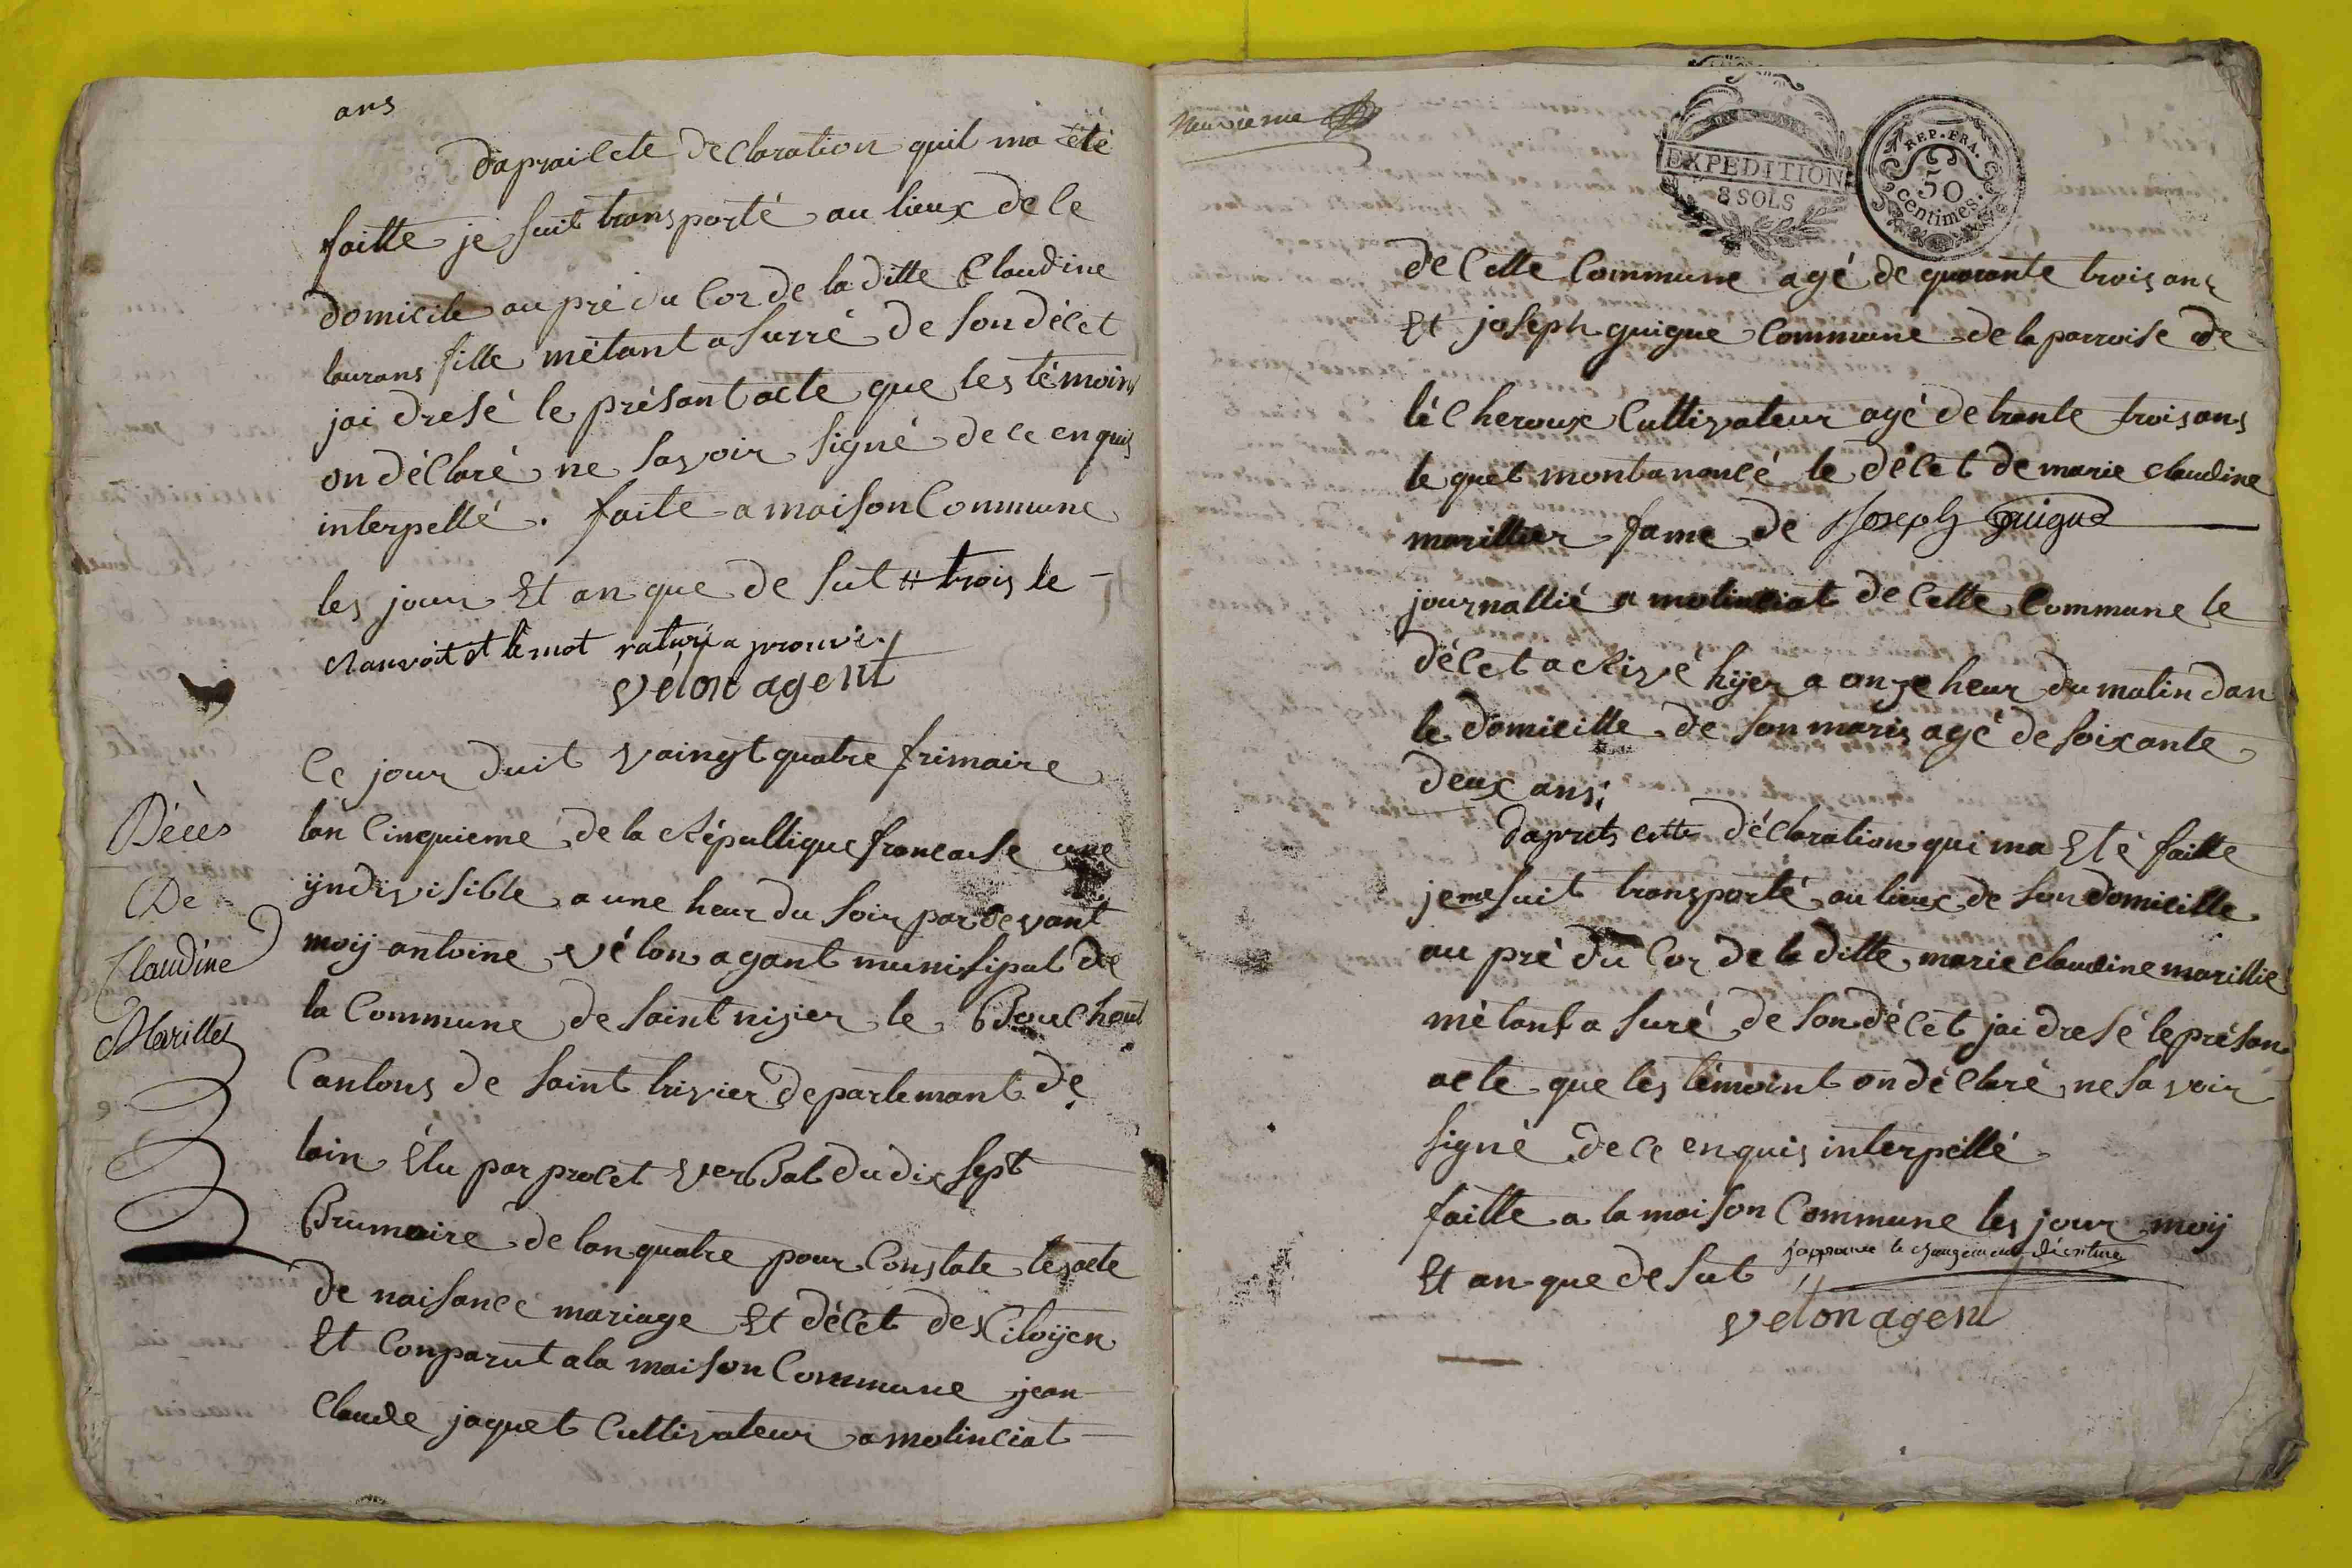 ans
Daprai lete declaration quil ma été
faitte je suit transporté au lieux de le
domicile au pré du Cor de la ditte Claudine
laurans fille métant asurré de son délet
jai dresé le présant acte que les témoins
on déClaré ne savoir signé de ce enquis
interpellé. faite a maison Commune
les jour Et an que de sut # trois le
chauvoit et le mot raturé a prouvé.
velon agent
Décès
De
Claudine
Marillet
Ce jour duit vaingt quatre frimaire
lan Cinquieme de la Républlique francaise une
ijndivisible a une heur du soir par devant
moij antoine vélon agant munisipal de
la Commune de saint nisier le Bouchout
Cantons de saint trivier departemant de
lain Elu par prolet verbal du dix sept
Brumaire de lan quatre pour Constate les acte
de naisance mariage Et délet des Citoijen
Et Conparut a la maison Commune jean
Claude jaquet Cultivateur a molinciat
neuvieme
EXPEDITION
8 SOLS
REP. FRA.
50
centimes.
de Cette Commune agé de quarante trois ans
Et joseph guigue Commune de la parroise de
léCheroux Cultivateur agé de trante trois ans
le quel mont anoncé le délet de marie claudine
marillier fame de Joseph Guigue
journallié a molinciat de Cette Commune le
délet a arivé hijer a onze heur du matin dan
le domicille de son maris agé de soixante
deux ans;
Daprets cette déClaration qui ma Eté faitte
je me suit transporté au lieux de son domicille
au pré du Cor de la ditte marie claudine marillié
métant a suré de son délet jai dresé le présan
acte que les témoint on déClaré ne savoir
signé de ce enquis interpéllé.
faitte a la maison Commune les jour moij
Et an que de sut japprouve le changement décriture
velon agent